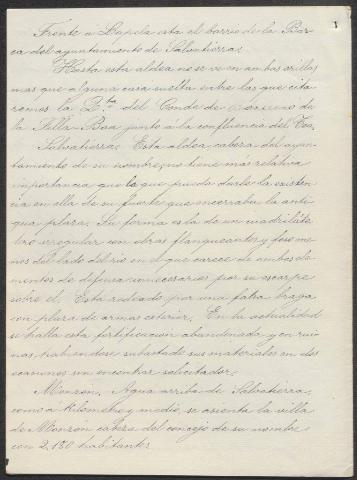 1
Frente a Lapela esta el barrio de la Bar
ca del ayuntamiento de Salvatierra.
Hasta esta aldea no se ve en ambas orillas
mas que alguna casa suelta entre las que cita
remos la Qta del Conde de
la Filla Boa junto á la confluencia del Tea.
Salvatierra. Esta aldea cabeza del ayun-
tamiento de su nombre, no tiene más relativa
importancia que la que pueda darle la existen
cia en ella de su fuerte que encerraba la anti
gua plaza. Su forma es la de un cuadriláte
ro irregular con obras flanqueantes y foso me
nos del lado del rio en el que carece de ambos ele
mentos de defensa innecesarios por su escarpe
sobre el. Está rodeado por una falsa braga
con plaza de armas exterior. En la actualidad
se halla esta fortificacion abandonada y en rui
nas, habiendose subastado sus materiales en dos
ocasiones sin encontrar solicitador.
Monzón. Agua arriba de Salvatierra,
como á kilometro y medio, se asienta la villa
de Monzón cabeza del concejo de su nombre
con 2,180 habitantes